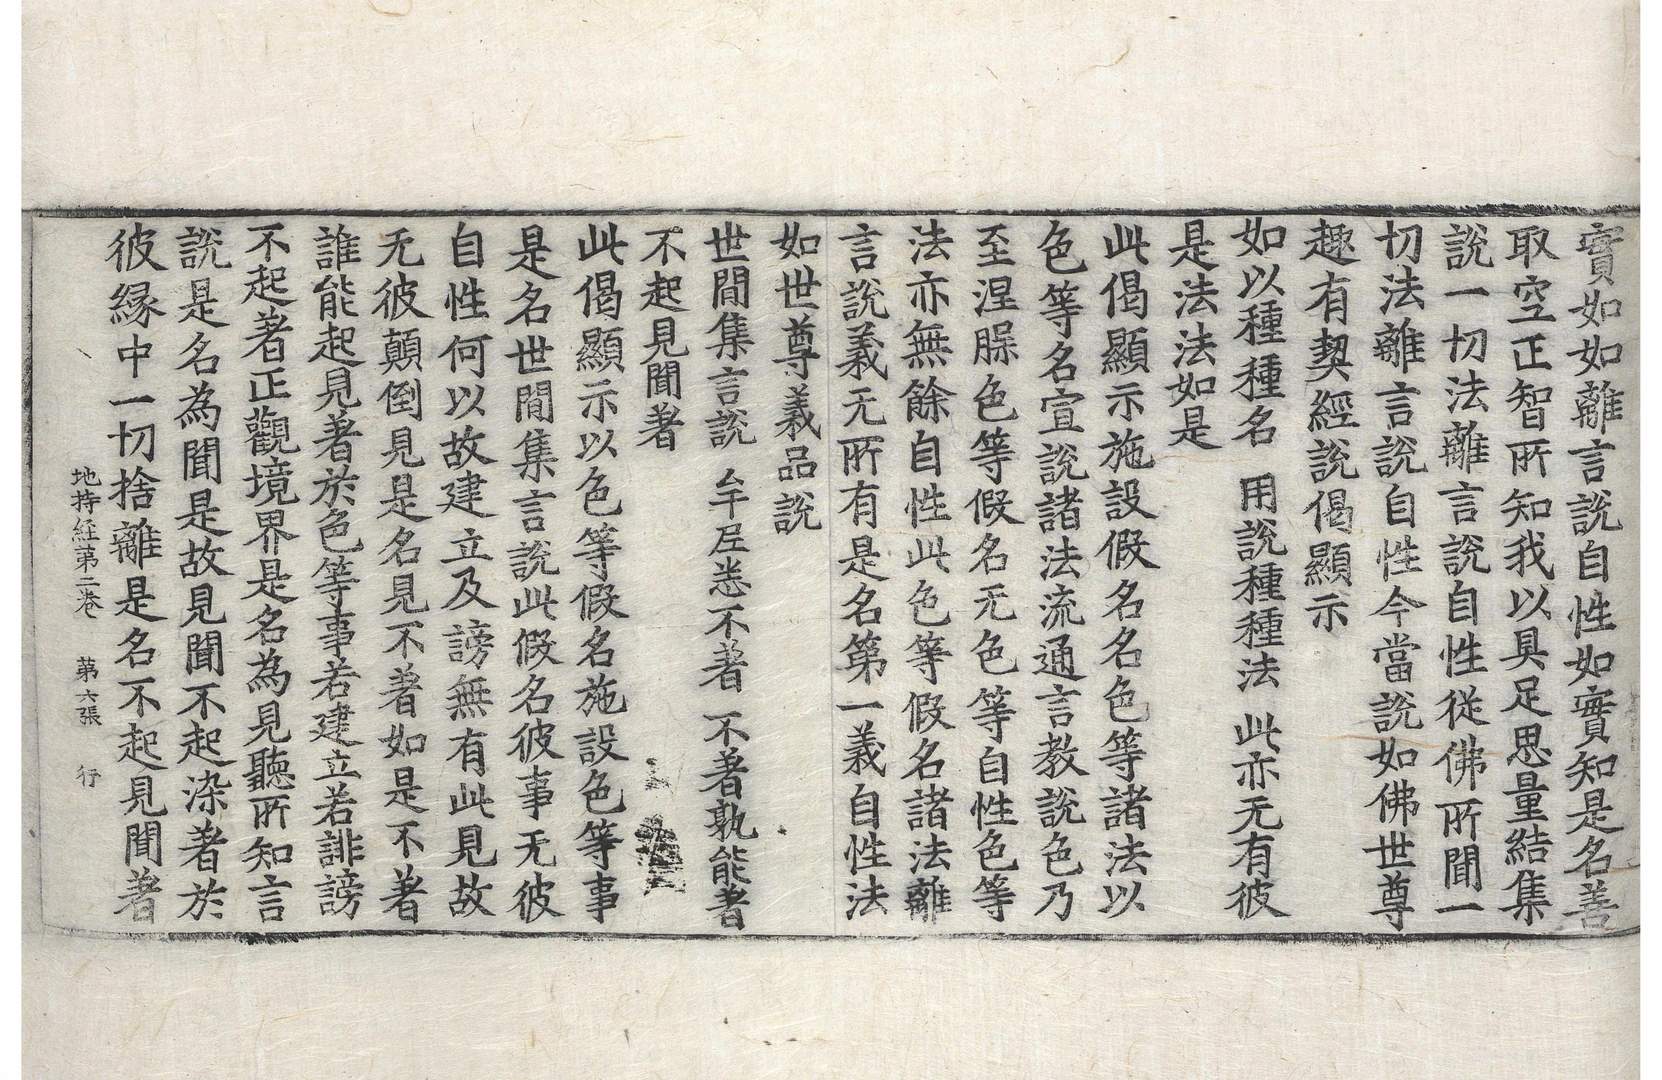 實如如離言說自性如實知是名善
取空正智所知我以具足思量結集
說一切法離言說自性從佛所聞一
切法離言說自性今當說如佛世尊
趣有契經說偈顯示
如以種種名　用說種種法　此亦无有彼
是法法如是
此偈顯示施設假名名色等諸法以
色等名宣說諸法流通言教說色乃
至涅𣵀色等假名无色等自性色等
法亦無餘自性此色等假名諸法離
言說義无所有是名第一義自性法
如世尊義品說
世間集言說　牟尼悉不著　不著孰能著
不起見聞著
此偈顯示以色等假名施設色等事
是名世間集言說此假名彼事无彼
自性何以故建立及謗無有此見故
无彼顛倒見是名見不著如是不著
誰能起見著於色等事若建立若誹謗
不起著正觀境界是名為見聽所知言
說是名為聞是故見聞不起染著於
彼緣中一切捨離是名不起見聞著
地持経第二卷　第六張　行